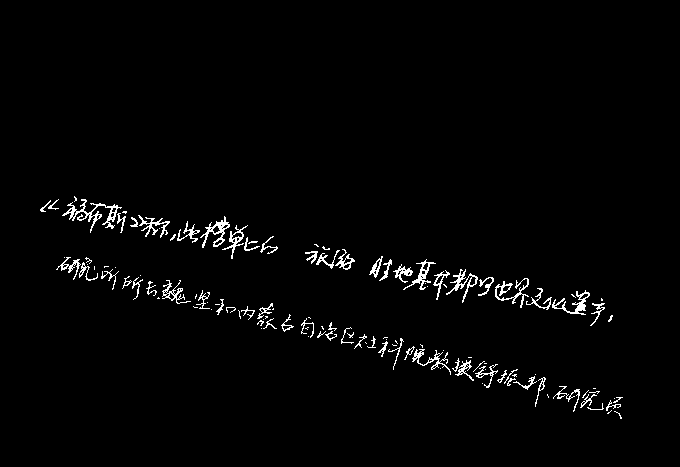 《福布斯》称，此榜单上的旅游胜地基本都是世界文化遗产，
研究所所长魏坚和内蒙古自治区社科院教授舒振邦、研究员